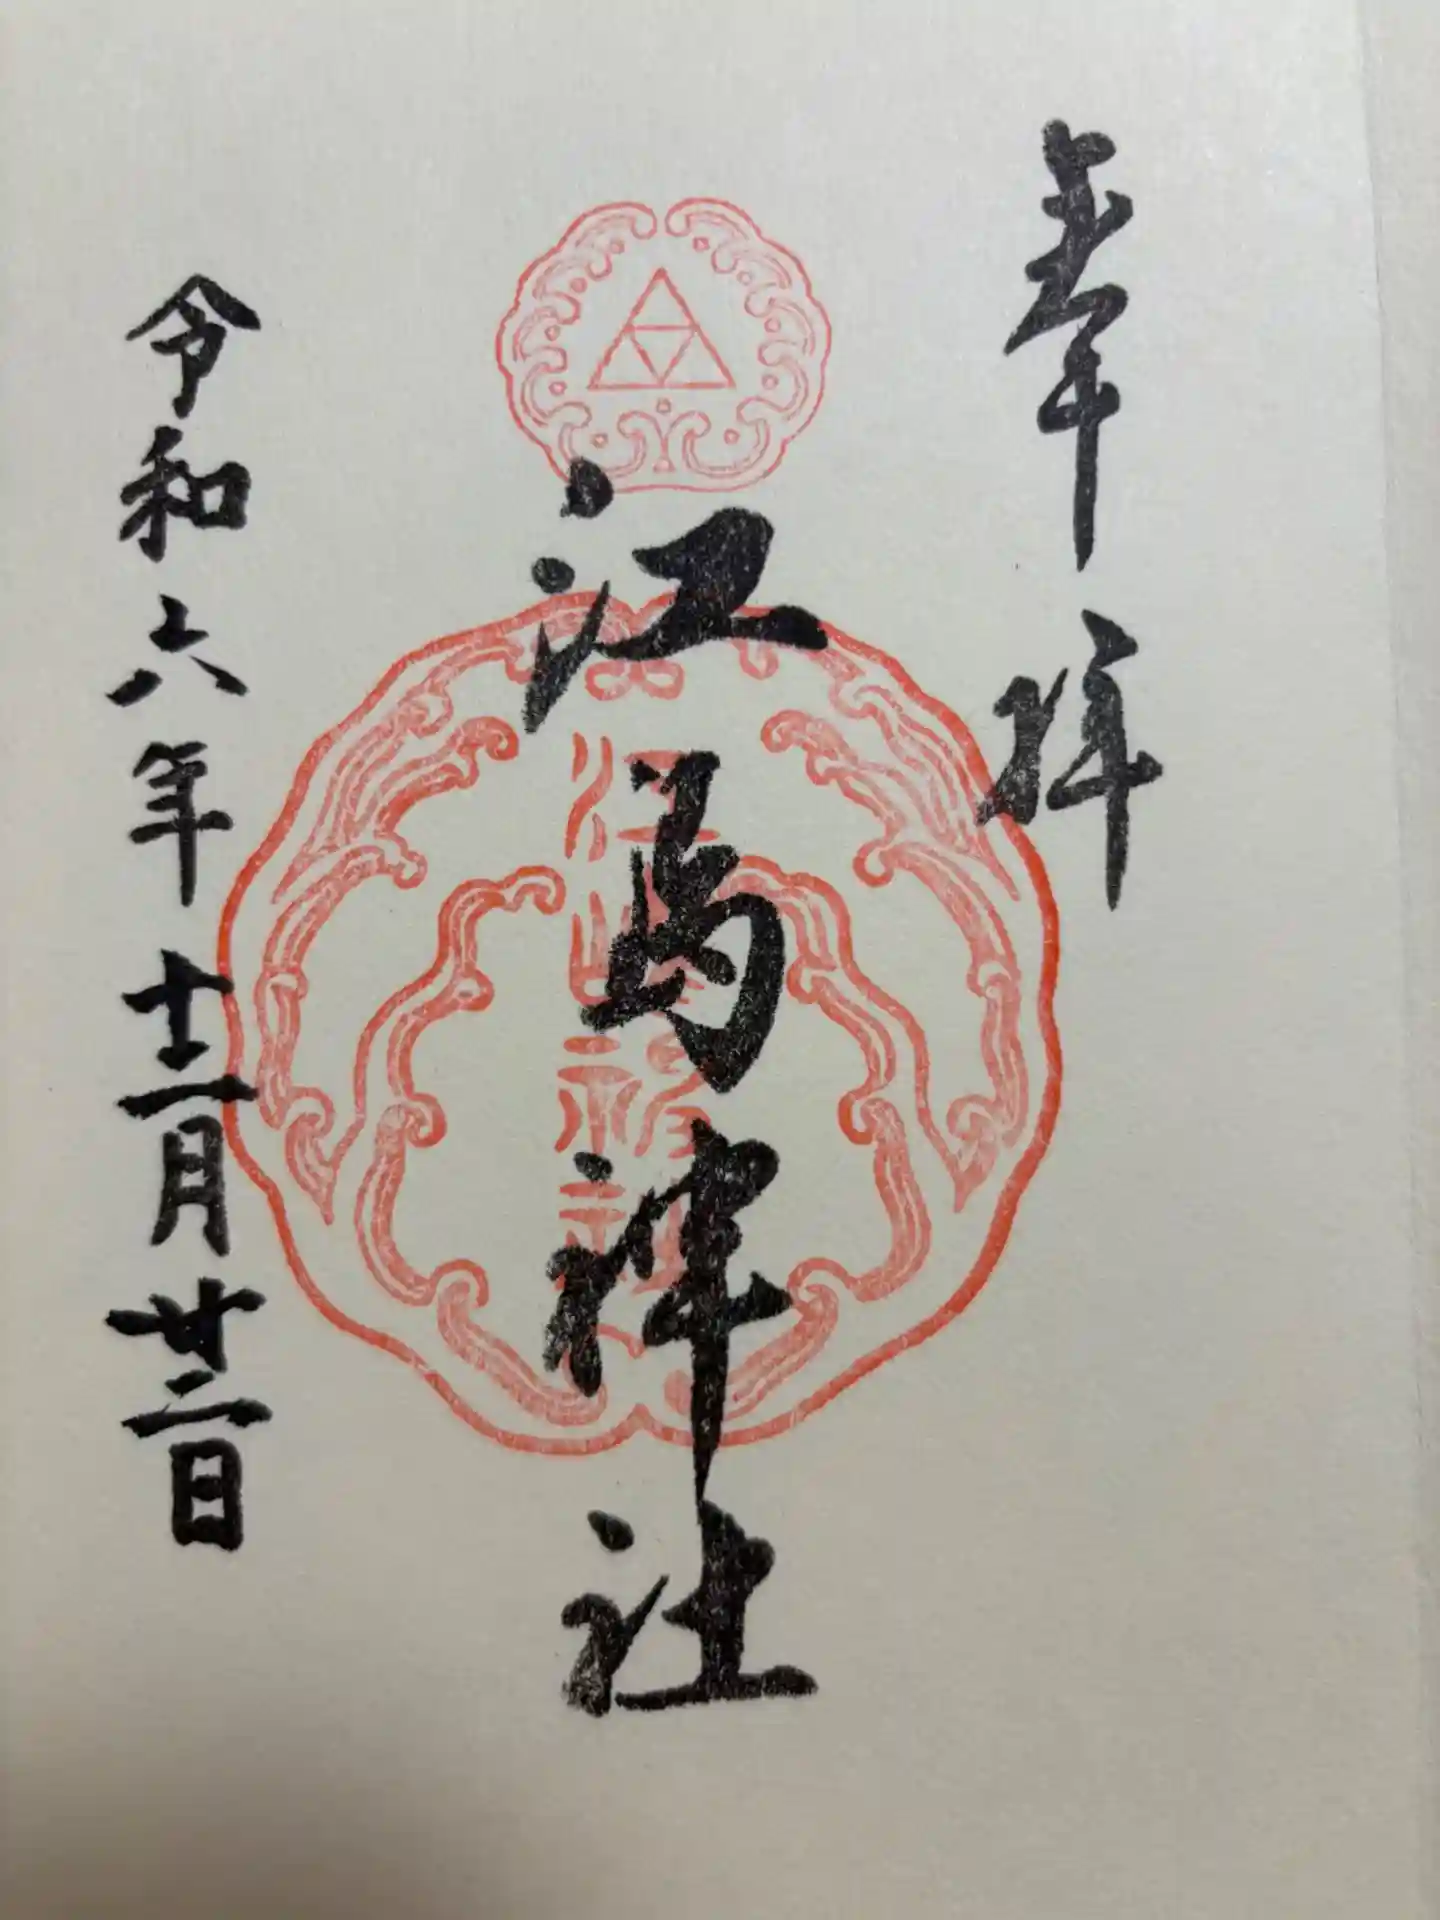 奉拝
江島神社
令和六年十二月廿二日